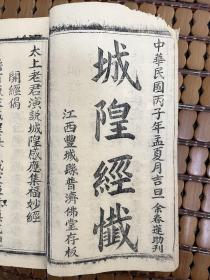 中華民國丙子年孟夏月吉旦 余春蓮助刊
城隍經懺
江西豐城縣普濟佛堂存板
太上老君演説城隍感應集福妙經
開經偈